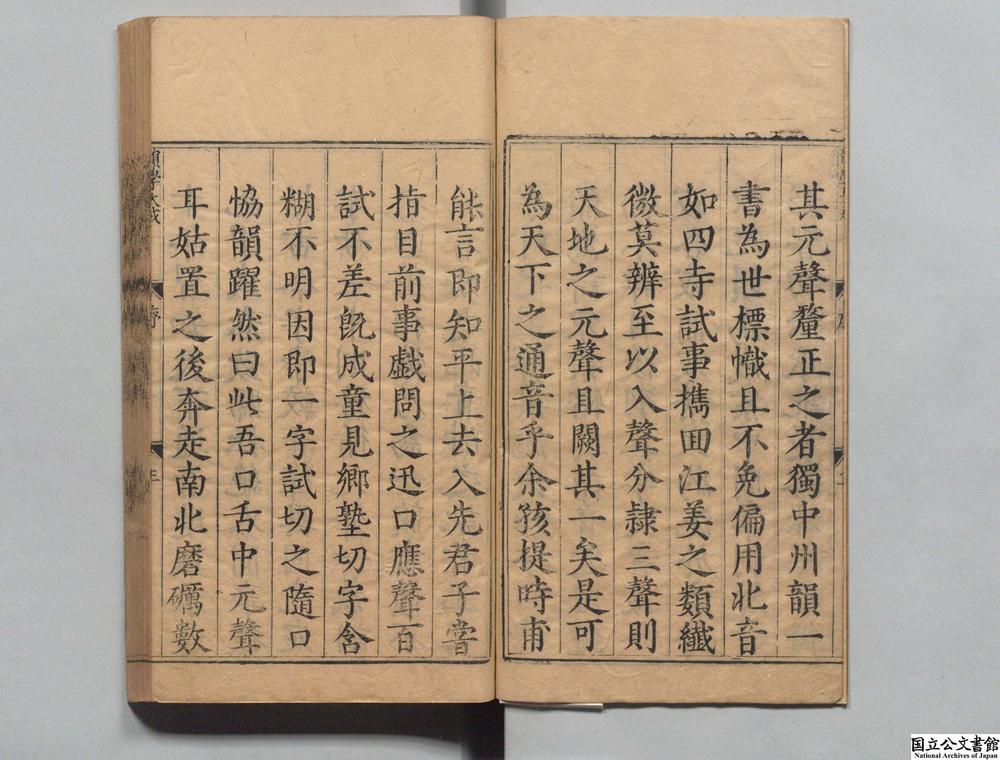 其元聲釐正之者獨中州韻一
書為世標幟且不免偏用北音
如四寺試事攜囬江姜之類纖
微莫辨至以入聲分隷三聲則
天地之元聲且闕其一矣是可
為天下之通音乎余孩提時甫
能言即知平上去入先君子嘗
指目前事戯問之迅口應聲百
試不差旣成童見鄉塾切字含
糊不明因即一字試切之隨口
恊韻躍然曰此吾口舌中元聲
耳姑置之後奔走南北磨礪數
序
三
国立公文書館
National Archives of Japan